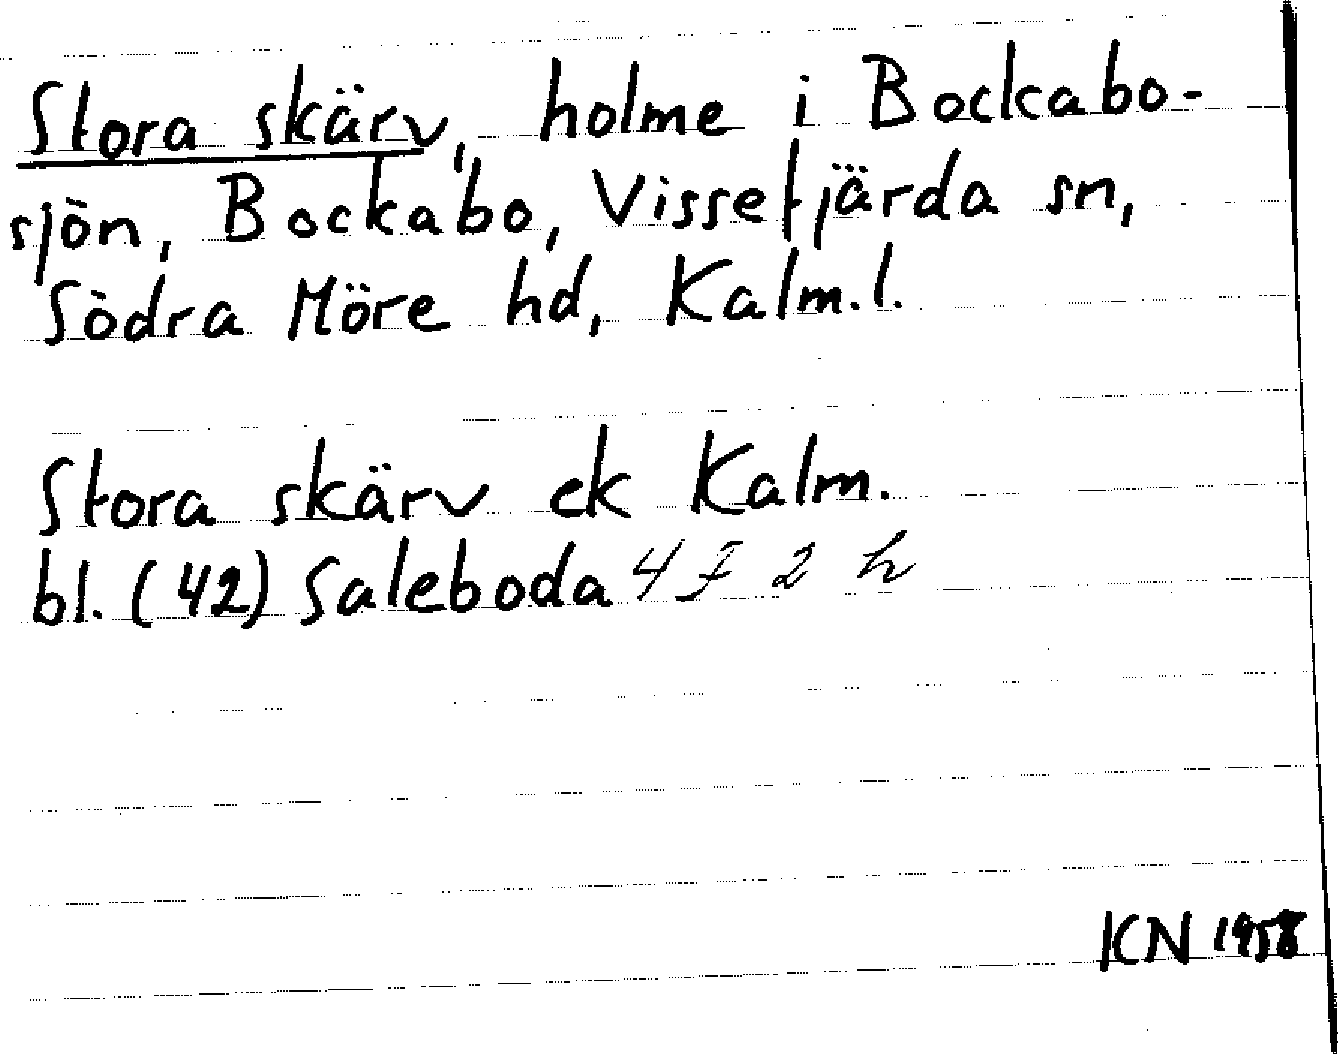 Stora skärv, holme i Bockabo-
sjön, Bockabo, Vissefjärda sn,
Södra Möre hd, Kalm.l.
Stora skärv ek Kalm.
bl. (42) Saleboda 4 F 2 h
KN 1958